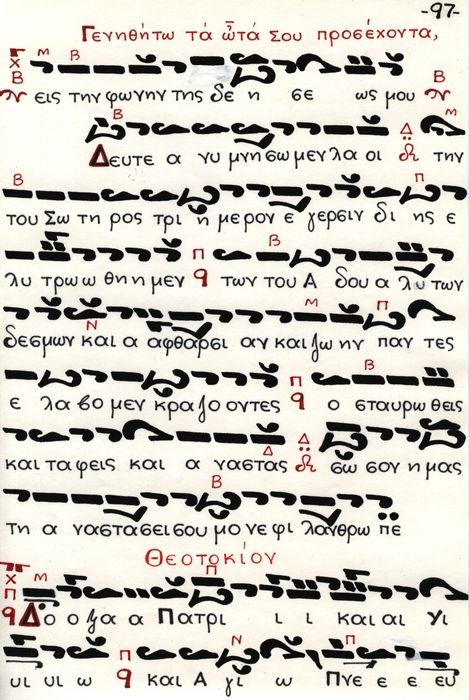 -97-
Γενηθήτω τά ὦτά σου προσέχοντα,
εις την φωνην της δε η σε ως μου
Δευτε α νυ μνη σω μεν λα οι την
του Σω τη ρος τρι ή μερον ε γερσιν δι ης ε
λυ τρω ω θη η μεν των του Α δου α λυ των
δεσμων και α αφθαρσι αν και ζω ην παν τες
ε λα βο μεν κρα ζο οντες ο σταυρω θεις
και τα φεις και α ναστας σω σον η μας
τη α ναστασει σου μο νε φι λανθρω πε
Θεοτοκίον
Δο ο ξα α Πατρι ι ι και αι Υι
υι υι ω και Α γι ω Πνε ε ε ευ